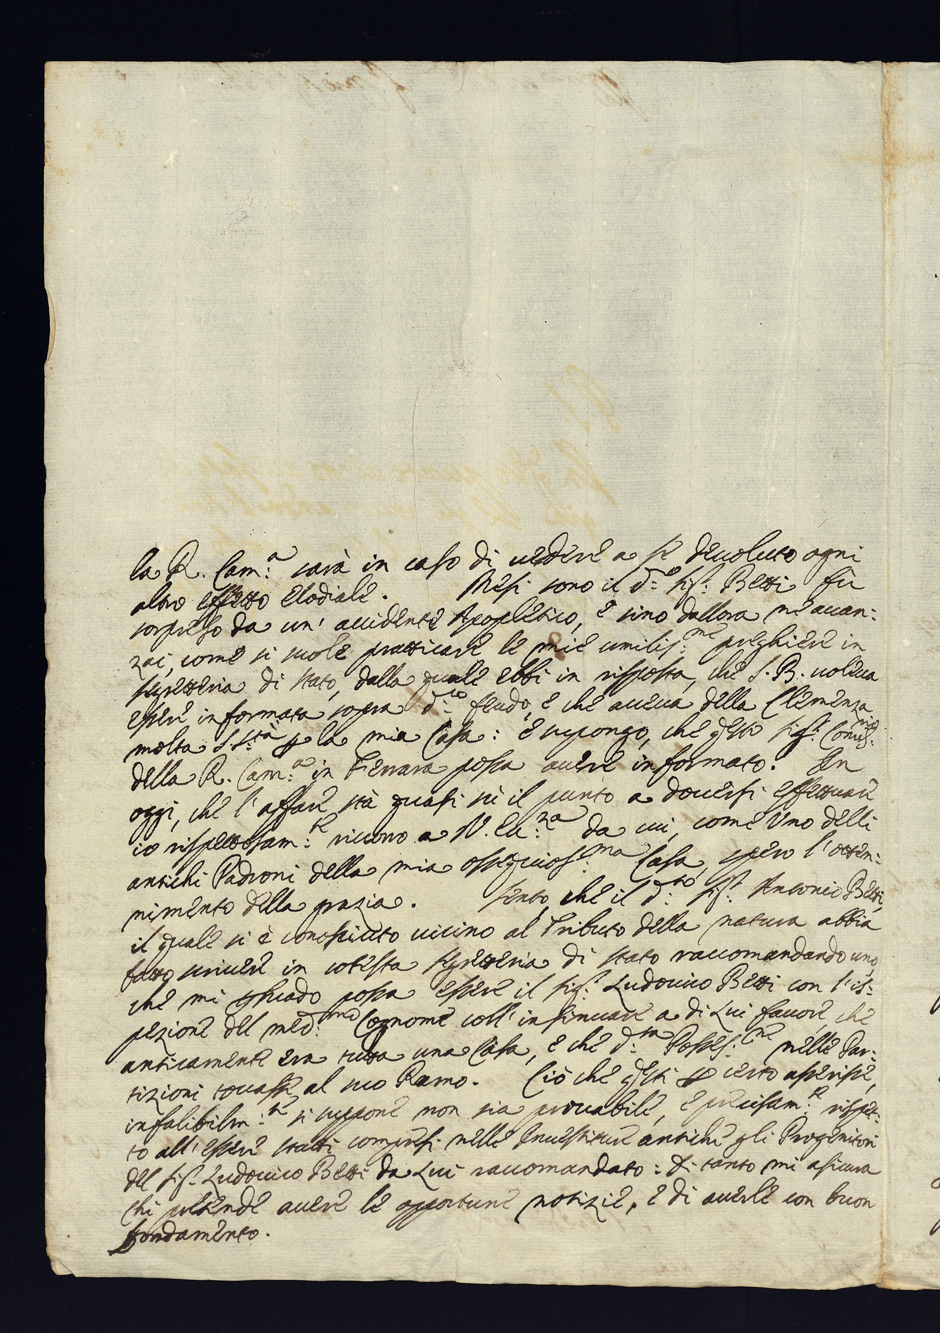 la R. Cam.ª sarà in caso di vedere a se devoluto ogni
altro effetto Elodiale. Mesi sono il d.º Sig.r Betti fu
sorpreso da un' accidente Apopletico, e sino dallora ne avan:
zai, come si suole pratticare le mie umilis:me preghiere in
Segretteria di Stato, dalla quale ebbi in risposta, che S. B. voleva
essere informata sopra d:to feudo, e che aveva della Clemenza
molta S. S.tà p la mia Casa: e suppongo, che questi Sig.ri Comis:rii
della R. Cam.ª in Ferrara possa avere informato. In
oggi, che l' affare stà quasi sù il punto a doversi effettuare
io rispettosam:te ricorro a V. Ecc:za da cui, come Uno delli
antichi Padroni della mia ossequios:ma Casa, spero l' otten:
nimento della grazia. Sento, che il d:to Sig.r Antonio Betti,
il quale si è conosciuto vicino al Tributo della natura abbia
fatto scrivere in cotesta Segretteria di Stato raccomandando uno
che mi persuado possa essere il Sig.r Ludovico Betti con l' is:
pezione del med:mo Cognome coll' insinuare a di Lui favore, che
anticamente era tutta una Casa, e che d:ta Posses:ne nelle Par:
tizioni toccasse al suo Ramo. Ciò che questi p certo asserisce,
infalibilm:te si suppone non sia provabile, e precisam:te rispet:
to all' essere stati compresi nelle Investiture antiche gli Progenitori
del Sig.r Ludovico Betti da Lui raccomandato: Di tanto mi asicura
chi pretende avere le opportune notizie, e di averle con buon
fondamento.